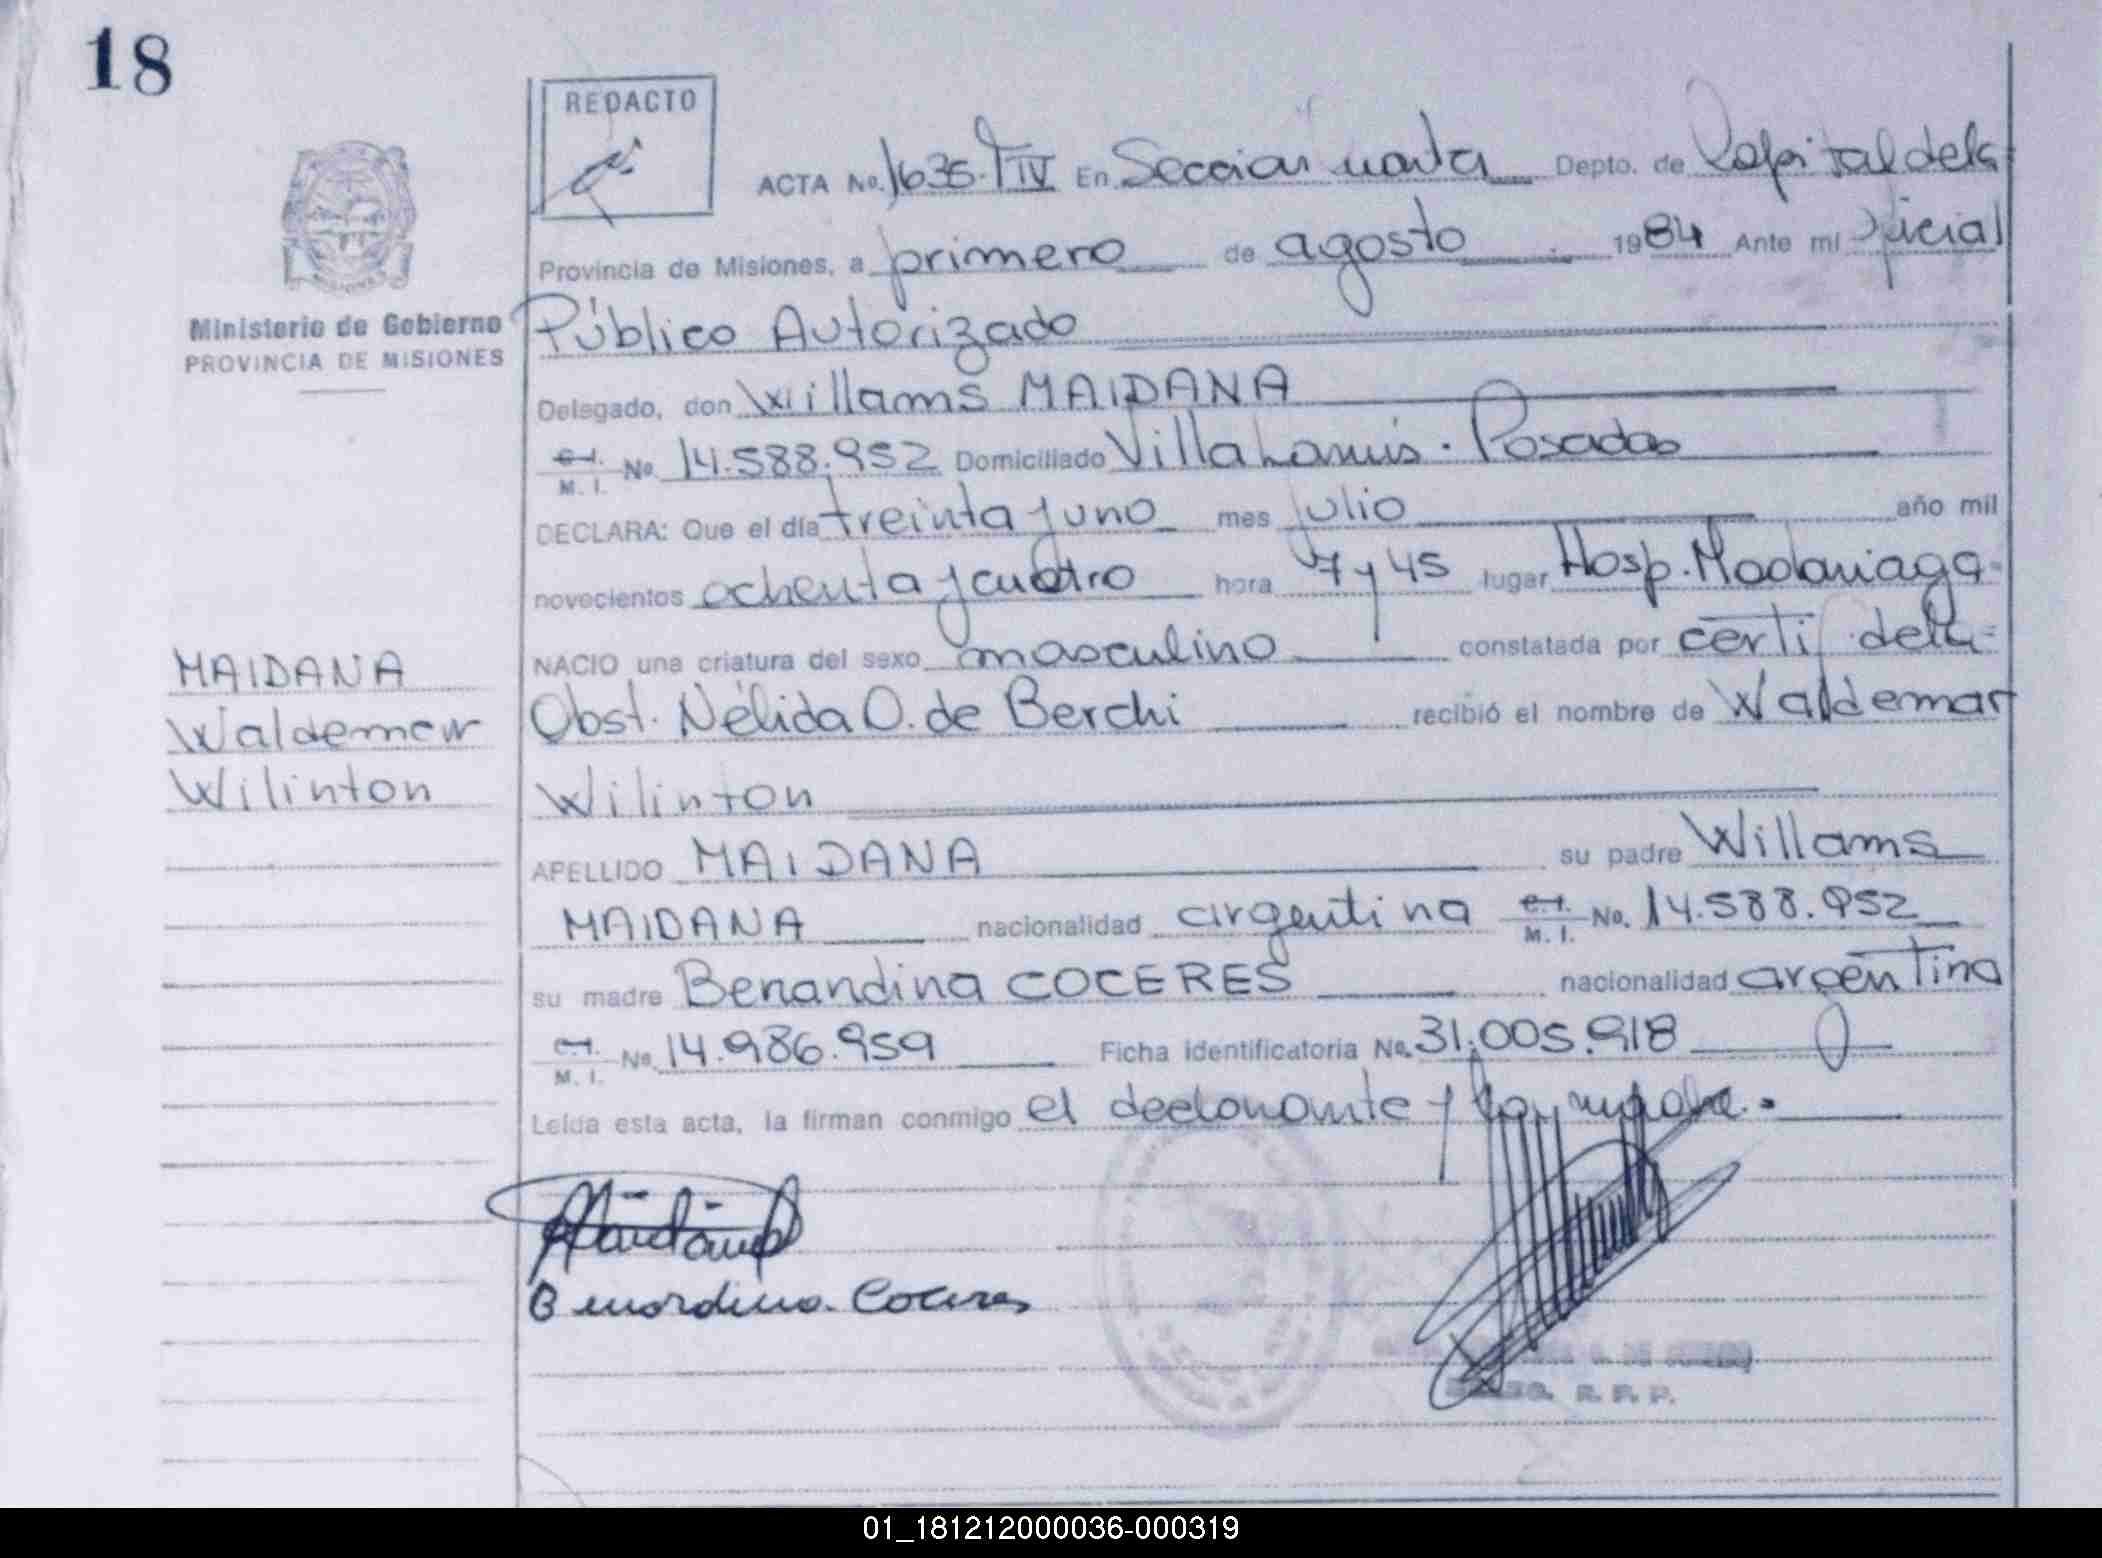 18
REDACTO
ACTA No. 1635. T IV En Seccion cuarta Depto. de Capital de la
Provincia de Misiones, a primero de agosto 1984 Ante mi Oficial
Ministerio de Gobierno
PROVINCIA DE MISIONES
Público Autorizado
Delegado, don Willams MAIDANA
C.I. M. I. No. 14.588.952 Domiciliado Villa Lanús. Posadas
DECLARA: Que el día treinta y uno mes julio año mil
novecientos ochenta y cuatro hora 7 y 45 lugar Hosp. Madariaga
NACIO una criatura del sexo masculino constatada por certif de la
Obst. Nélida O. de Berchi recibió el nombre de Waldemar
Wilinton
MAIDANA
Waldemar
Wilinton
APELLIDO MAIDANA su padre Willams
MAIDANA nacionalidad argentina C.I. M. I. No. 14.588.952
su madre Benardina COCERES nacionalidad argentina
C.I. M. I. No. 14.986.959 Ficha identificatoria No. 31.005.918
Leída esta acta, la firman conmigo el declarante y
Maidana
Benardina Coceres
R. P. P.
01_181212000036-000319